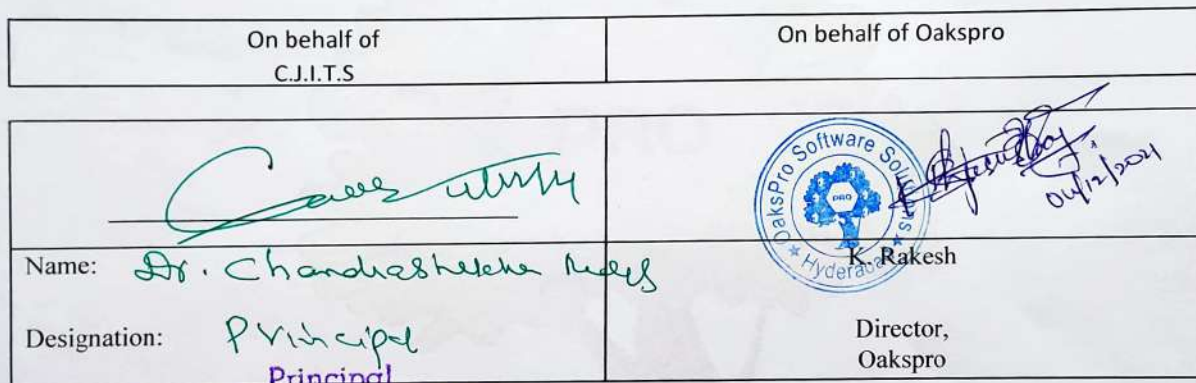 On behalf of
C.J.I.T.S
On behalf of Oakspro
OaksPro Software Solutions
PRO
★ Hyderabad ★
04/12/2021
Name: Dr. Chandrashekhar Reddy
K. Rakesh
Designation: Principal
Principal
Director,
Oakspro